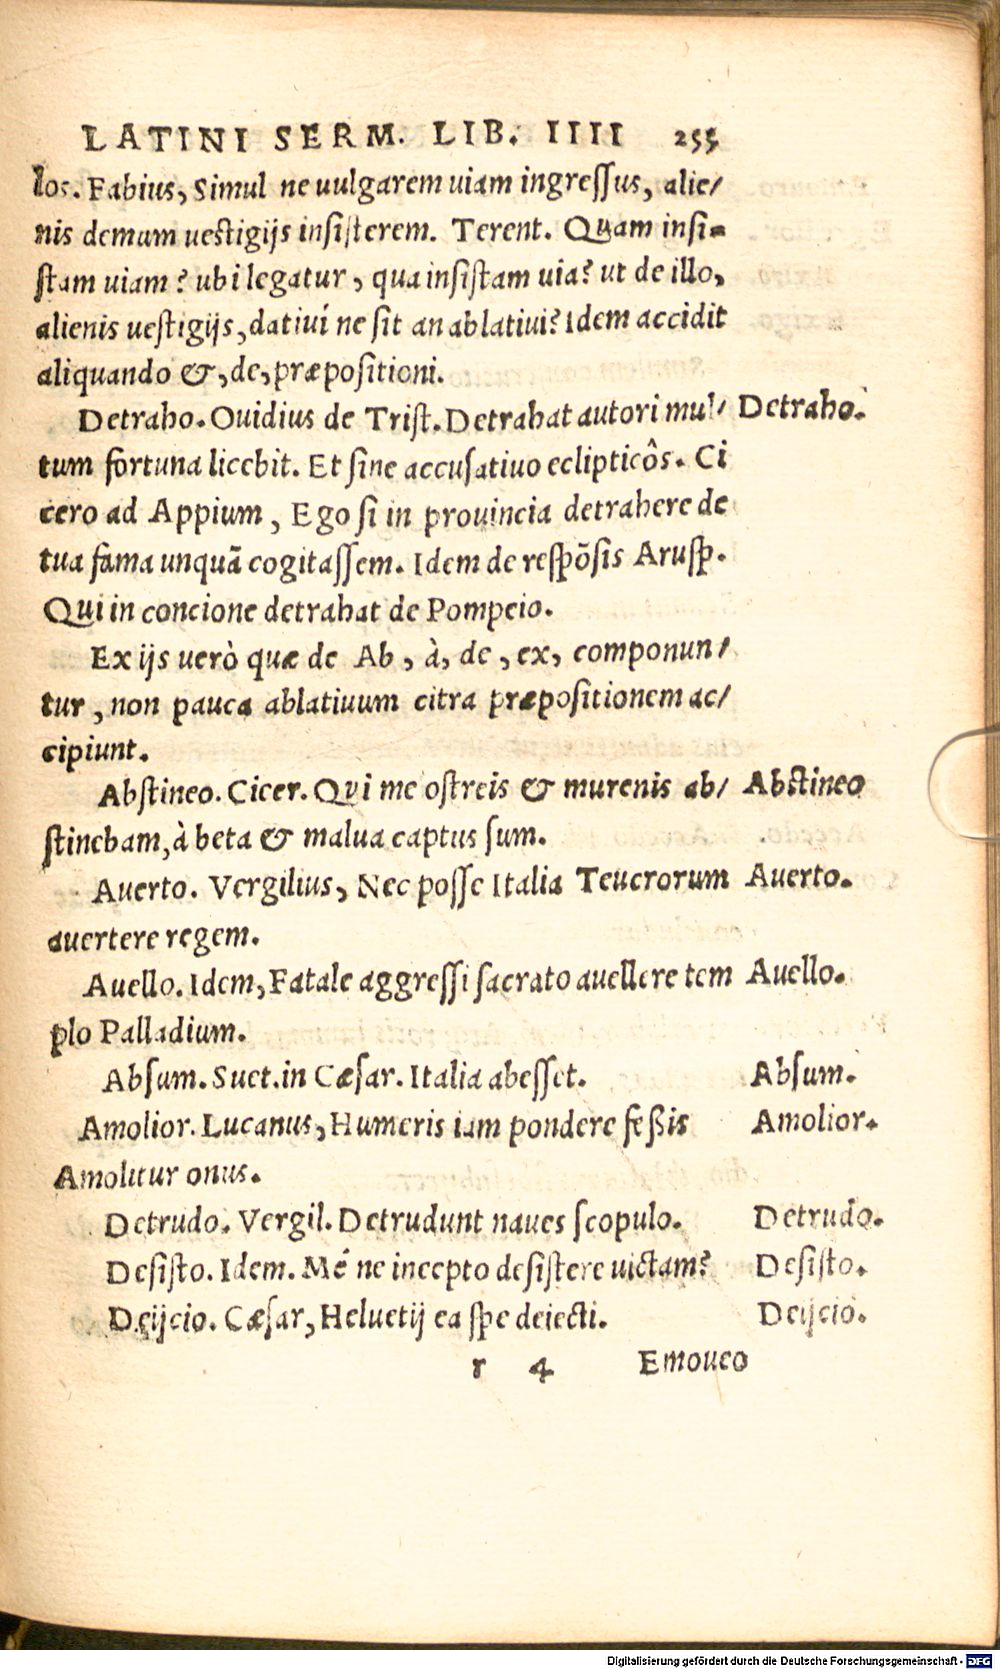 LATINI SERM. LIB. IIII 255
los. Fabius, Simul ne uulgarem uiam ingressus, alie/
nis demum uestigijs insisterem. Terent. Quam insi-
stam uiam? ubi legatur, qua insistam uia? ut de illo,
alienis uestigijs, datiuí ne sit an ablatiui? Idem accidit
aliquando &, de, præpositioni.
Detraho. Ouidius de Trist. Detrahat autori mul/ Detraho.
tum fortuna licebit. Et sine accusatiuo eclipticôs. Ci
cero ad Appium, Ego si in prouincia detrahere de
tua fama unquã cogitassem. Idem de respõsis Arusp.
Qui in concione detrahat de Pompeio.
Ex ijs uerò quæ de Ab, à, de, ex, componun/
tur, non pauca ablatiuum citra præpositionem ac/
cipiunt.
Abstineo. Cicer. Qui me ostreis & murenis ab/ Abstineo
stinebam, à beta & malua captus sum.
Auerto. Vergilius, Nec posse Italia Teucrorum Auerto.
auertere regem.
Auello. Idem, Fatale aggressi sacrato auellere tem Auello.
plo Palladium.
Absum. Suet. in Cæsar. Italia abesset. Absum.
Amolior. Lucanus, Humeris iam pondere feßis Amolior.
Amolitur onus.
Detrudo. Vergil. Detrudunt naues scopulo. Detrudo.
Desisto. Idem. Mé ne incepto desistere uictam? Desisto.
Deijcio. Cæsar, Heluetij ea spe deiecti. Deijcio.
r 4 Emoueo
Digitalisierung gefördert durch die Deutsche Forschungsgemeinschaft - DFG